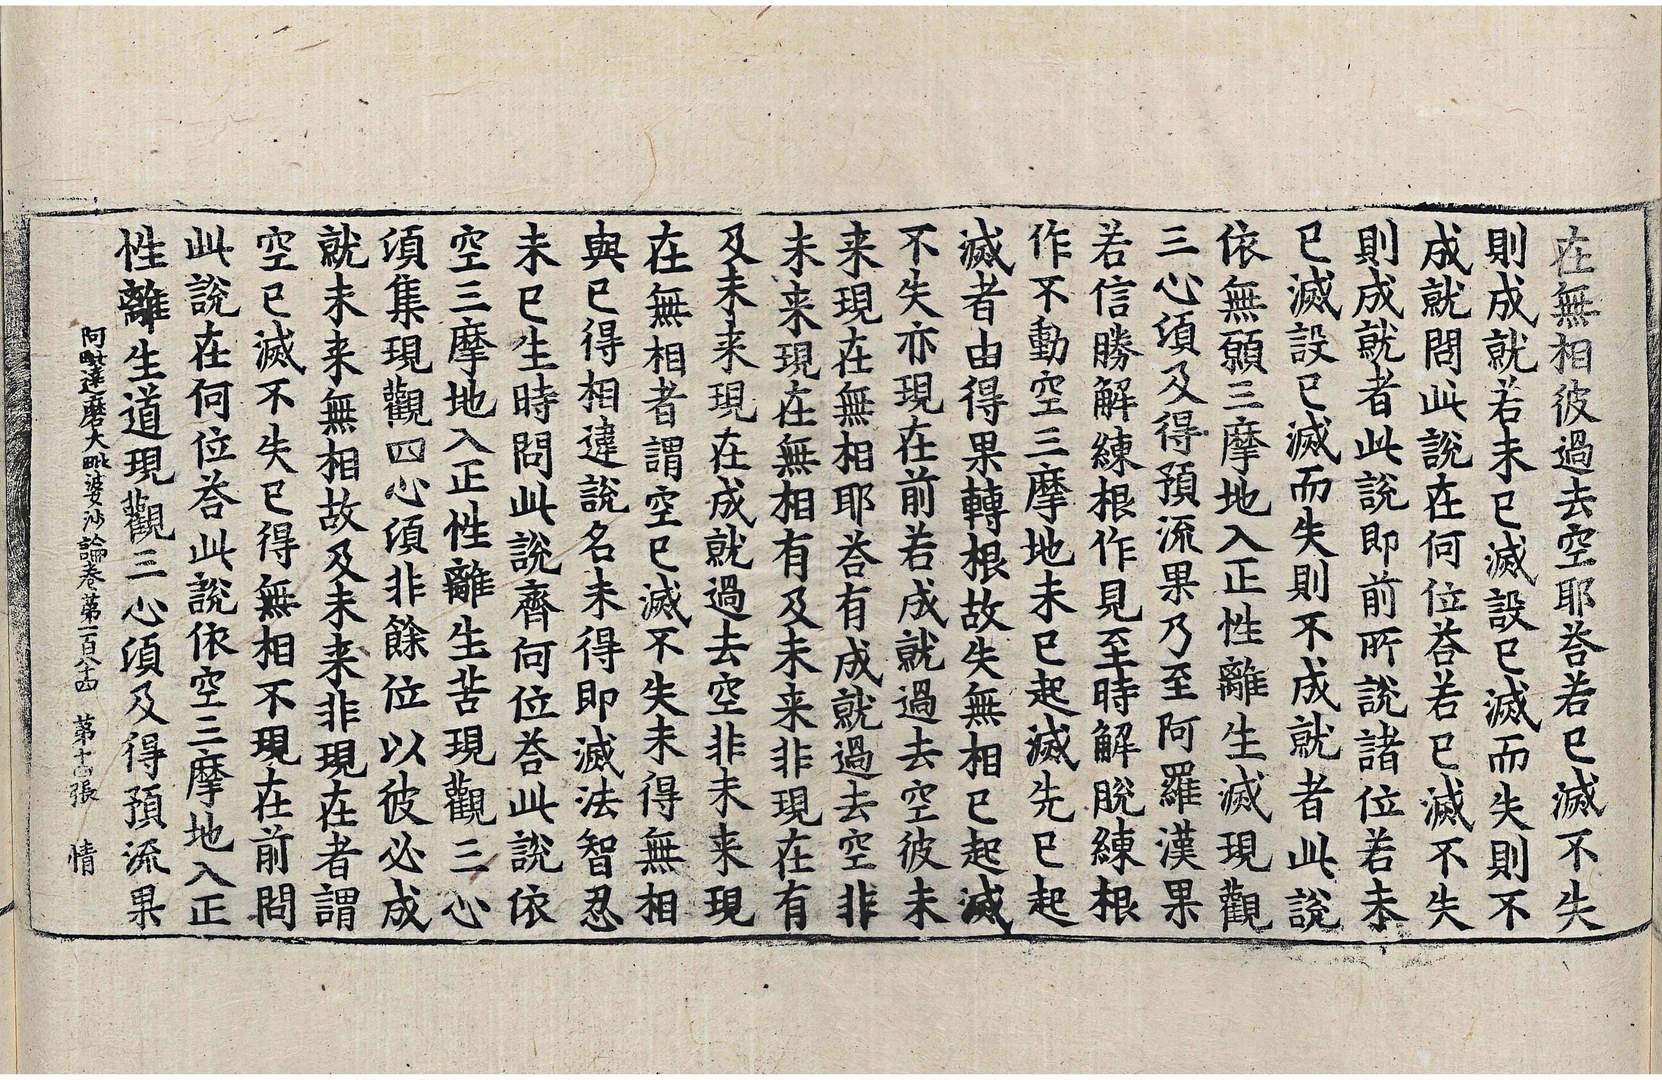 在無相彼過去空耶荅若已滅不失
則成就若未已滅設已滅而失則不
成就問此說在何位荅若已滅不失
則成就者此說即前所說諸位若未
已滅設已滅而失則不成就者此說
依無願三摩地入正性離生滅現觀
三心須及得預流果乃至阿羅漢果
若信勝解練根作見至時解脫練根
作不動空三摩地未已起滅先已起
滅者由得果轉根故失無相已起滅
不失亦現在前若成就過去空彼未
来現在無相耶荅有成就過去空非
未来現在無相有及未来非現在有
及未来現在成就過去空非未来現
在無相者謂空已滅不失未得無相
與已得相違說名未得即滅法智忍
未已生時問此說齊何位荅此說依
空三摩地入正性離生苦現觀三心
須集現觀四心須非餘位以彼必成
就未来無相故及未来非現在者謂
空已滅不失已得無相不現在前問
此說在何位荅此說依空三摩地入正
性離生道現觀三心須及得預流果
阿毗達磨大毗婆沙論卷第一百八十四 第十四張 情